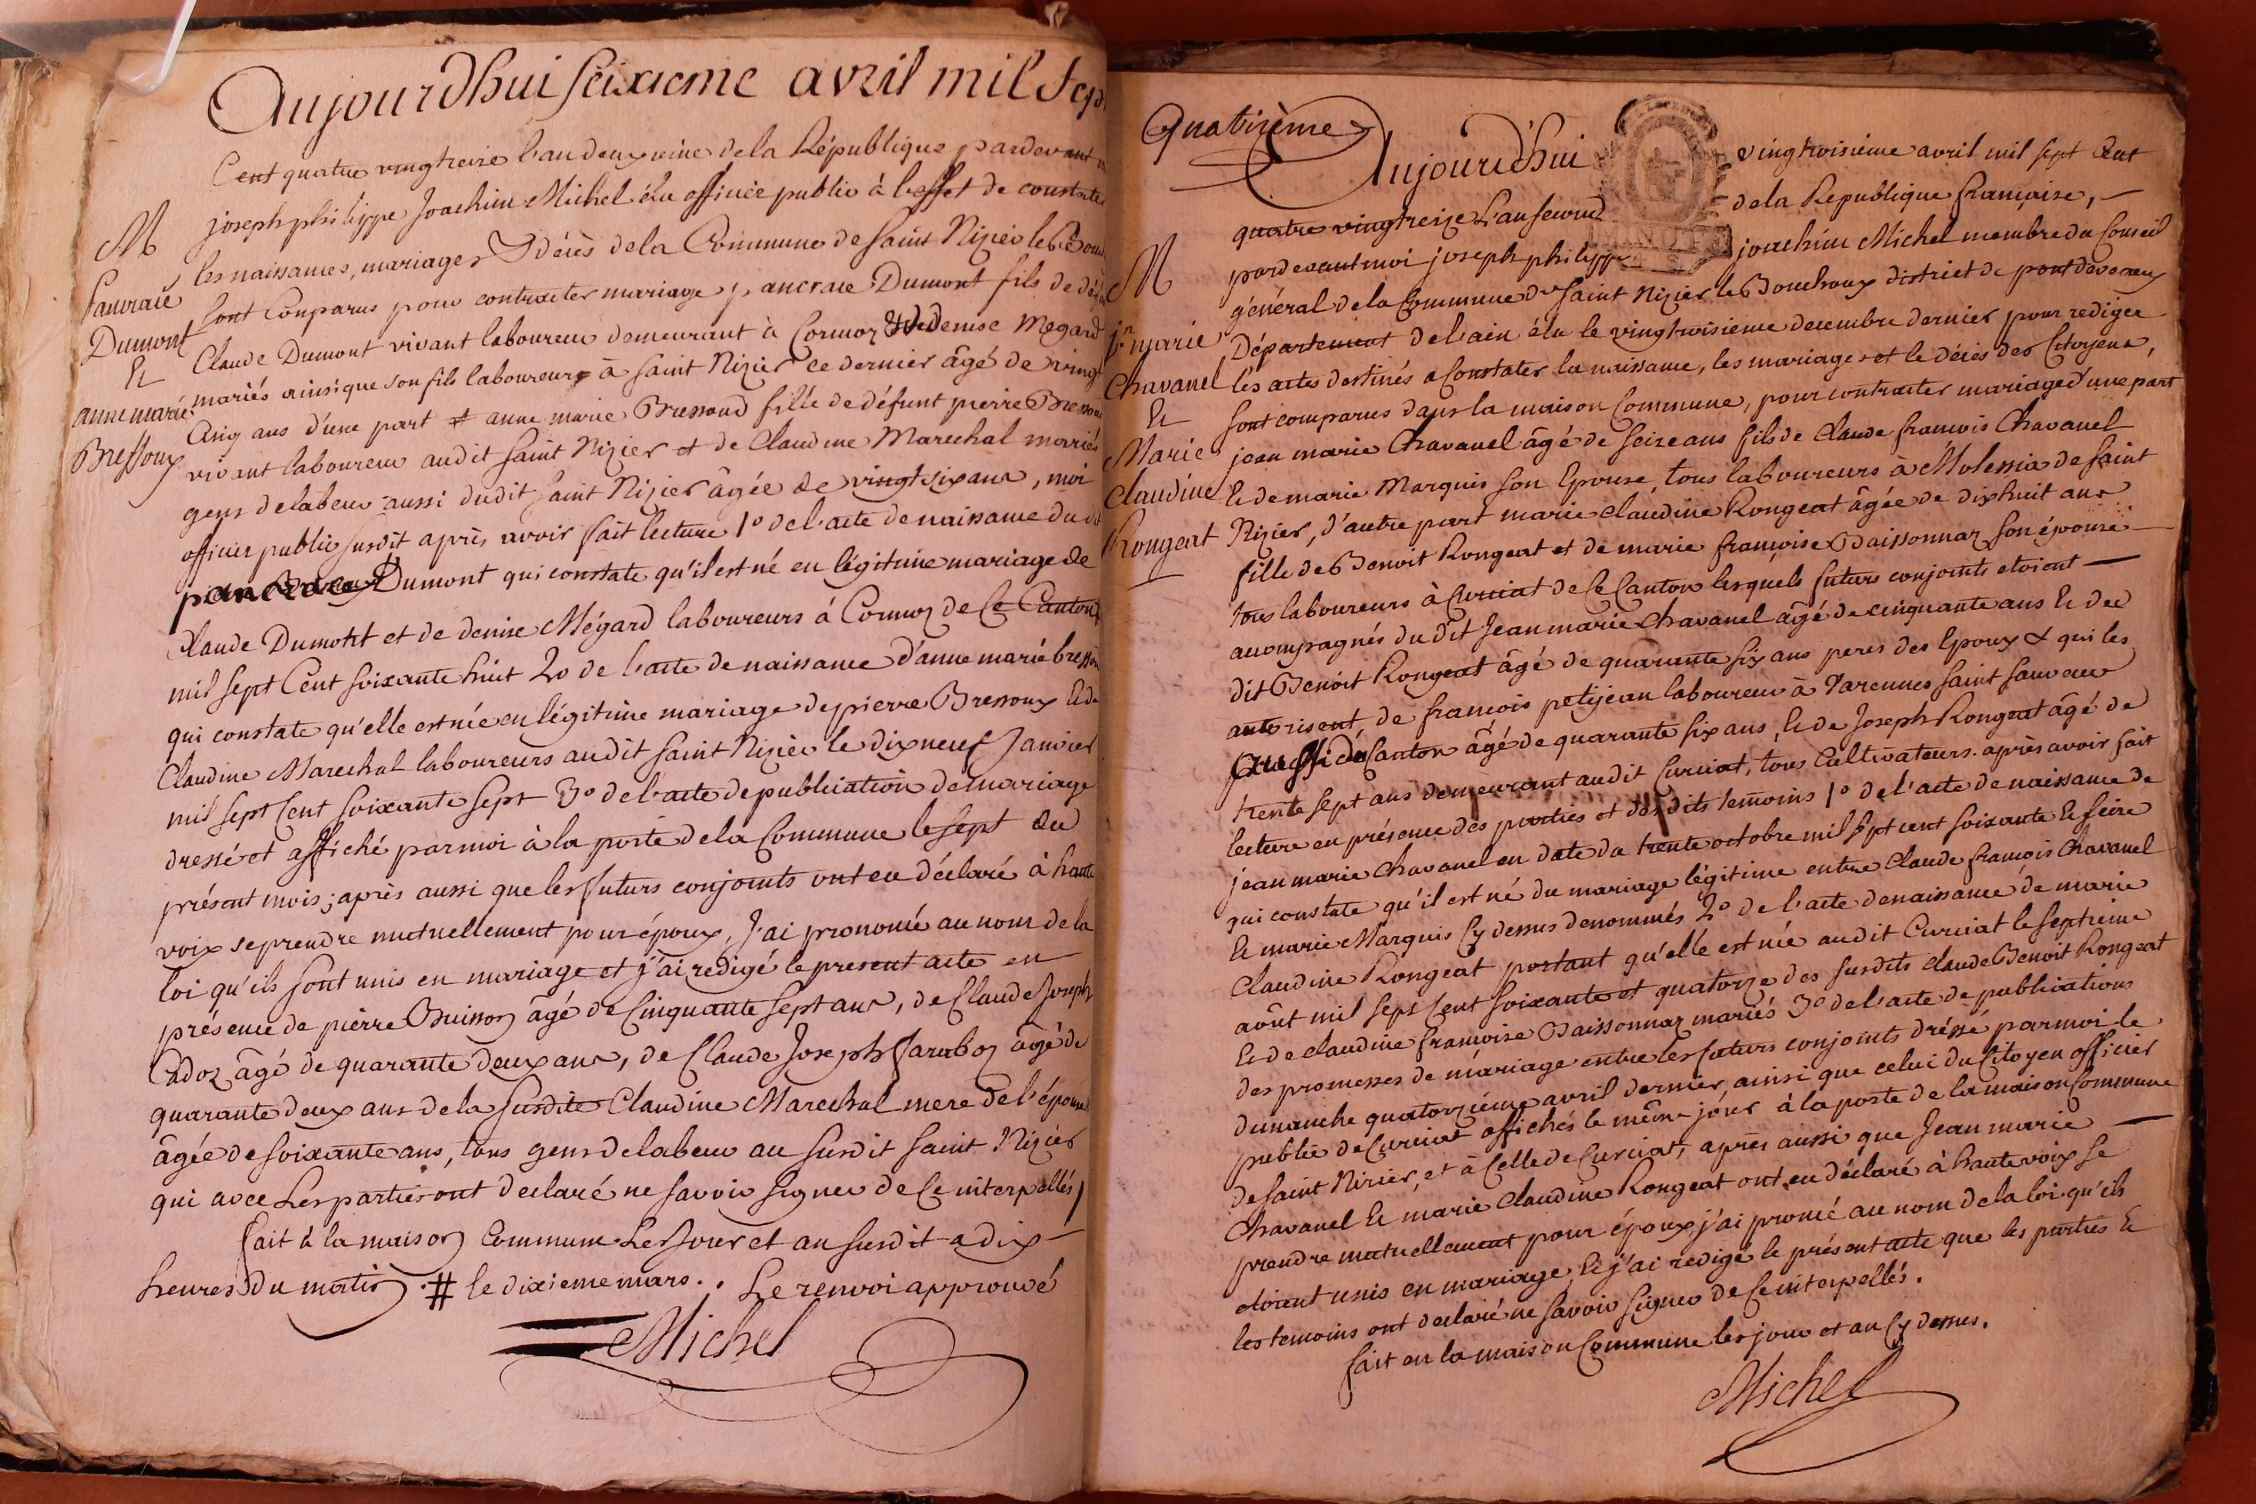 Aujourdhui seixieme avril mil sept
Cent quatre vingtreize l'an deuxieme de la République pardevant
joseph philippe Joachim Michel élu officié public à l'effet de constater
les naissances, mariages & décès de la Commune de saint Nizier le Bou
sont Conparus pour contracter mariage, pancrace Dumont fils de
Claude Dumont vivant laboureur demeurant à Cormoz & de denise Megard
mariés ainsi que son fils laboureur à saint Nizier ce dernier âgé de vingt
Cinq ans d'une part # anne marie Bressoud fille de défunt pierre
vivant laboureur audit saint Nizier et de Claudine Marechal mariés
gens de labeur aussi dudit saint Nizier âgée de vingt six ans, moi
officier public susdit après avoir fait lecture 1º de l'acte de naissance du
pancrace Dumont qui constate qu'il est né en légitime mariage de
Claude Dumont et de denise Mégard laboureurs á Cormoz de Ce Canton
mil sept Cent soixante huit 2º de l'acte de naissance d'anne marie
qui constate qu'elle est née en légitime mariage de pierre Bressoux & de
Claudine Marechal laboureurs audit saint Nizier le dix neuf Janvier
mil sept Cent soixante sept 3º de l'acte de publication de mariage
dressé et affiché par moi à la porte de la Commune le sept du
présent mois ; après aussi que les futurs conjoints ont eu déclaré à haute
voix se prendre mutuellement pour époux, J'ai prononcé au nom de la
loi qu'ils sont unis en mariage et j'ai redigé le present acte en
présence de pierre Buisson âgé de Cinquante sept ans, de Claude Joseph
Cadoz âgé de quarante deux ans, de Claude Joseph âgé de
quarante deux ans de la susdite Claudine Marechal mere de l'épouse
âgée de soixante ans, tous gens de labeur au susdit saint Nizier
qui avec Les parties ont declaré ne savoir signer de Ce interpellés
fait à la maison Commune Les Jour et an susdit a dix
heures du matin. # le dixieme mars.. Le renvoi approuvé
Michel
M
Pancrace
Dumont
&
anne marie
Bressoux
quatrième
Aujourd'hui vingtroisième avril mil sept Cent
quatre vingtreize L'an second de la Republique française,
pardevant moi joseph philippe joachim Michel membre du Conseil
général de la Commune de saint Nizier le Bouchoux district de pont de vaux
Département de l'ain élu le vingtroisieme decembre dernier pour rediger
les actes destinés a Constater la naissance, les mariages et le décès des Citoyens,
sont comparus dans la maison Commune, pour contracter mariage d'une part
jean marie Chavanel âgé de seize ans fils de Claude francois Chavanel
& de marie Marquis son Epouse, tous laboureurs à Molessia de saint
Nizier, d'autre part marie claudine Rongeat âgée de dixhuit ans
fille de Benoit Rongeat et de marie françoise son épouse
tous laboureurs à Curciat de Ce Canton lesquels futurs conjoints etoient
accompagnés du dit Jean marie Chavanel âgé de cinquante ans & du
dit Benoit Rongeat âgé de quarante six ans peres des Epoux & qui les
autorisent, de francois petijean laboureur à Varennes saint sauveur
aussi du Canton âgé de quarante six ans, & de Joseph Rongeat âgé de
trente sept ans demeurant audit Curciat, tous Cultivateurs. après avoir fait
lecture en présence des parties et des dits temoins 1º de l'acte de naissance de
jean marie Chavanel en date du trente octobre mil sept cent soixante & seize
qui constate qu'il est né du mariage légitime entre claude françois Chavanel
& marie Marquis Cy dessus denommés 2º de l'acte de naissance de marie
Claudine Rongeat portant qu'elle est née audit Curciat le septieme
août mil sept Cent soixante et quatorze des susdits claude Benoit Rongeat
& de claudine françoise mariés 3º de l'acte de publications
des promesses de mariage entre les futurs conjoints dréssé par moi le
dimanche quatorzième avril dernier, ainsi que celui du Citoyen officier
public de Curciat affichés le même jour à la porte de la maison Commune
de saint Nizier, et à Celle de Curciat, après aussi que Jean marie
Chavanel & marie Claudine Rongeat ont eu déclaré à haute voix se
prendre mutuellement pour époux, j'ai proncé au nom de la loi qu'ils
etoient unis en mariage, & j'ai redigé le présent acte que les parties &
les temoins ont declaré ne savoir signer de Ce interpellés.
fait en la maison Commune les jour et an Cy dessus.
Michel
M
jn marie
Chavanel
&
Marie
Claudine
Rongeat